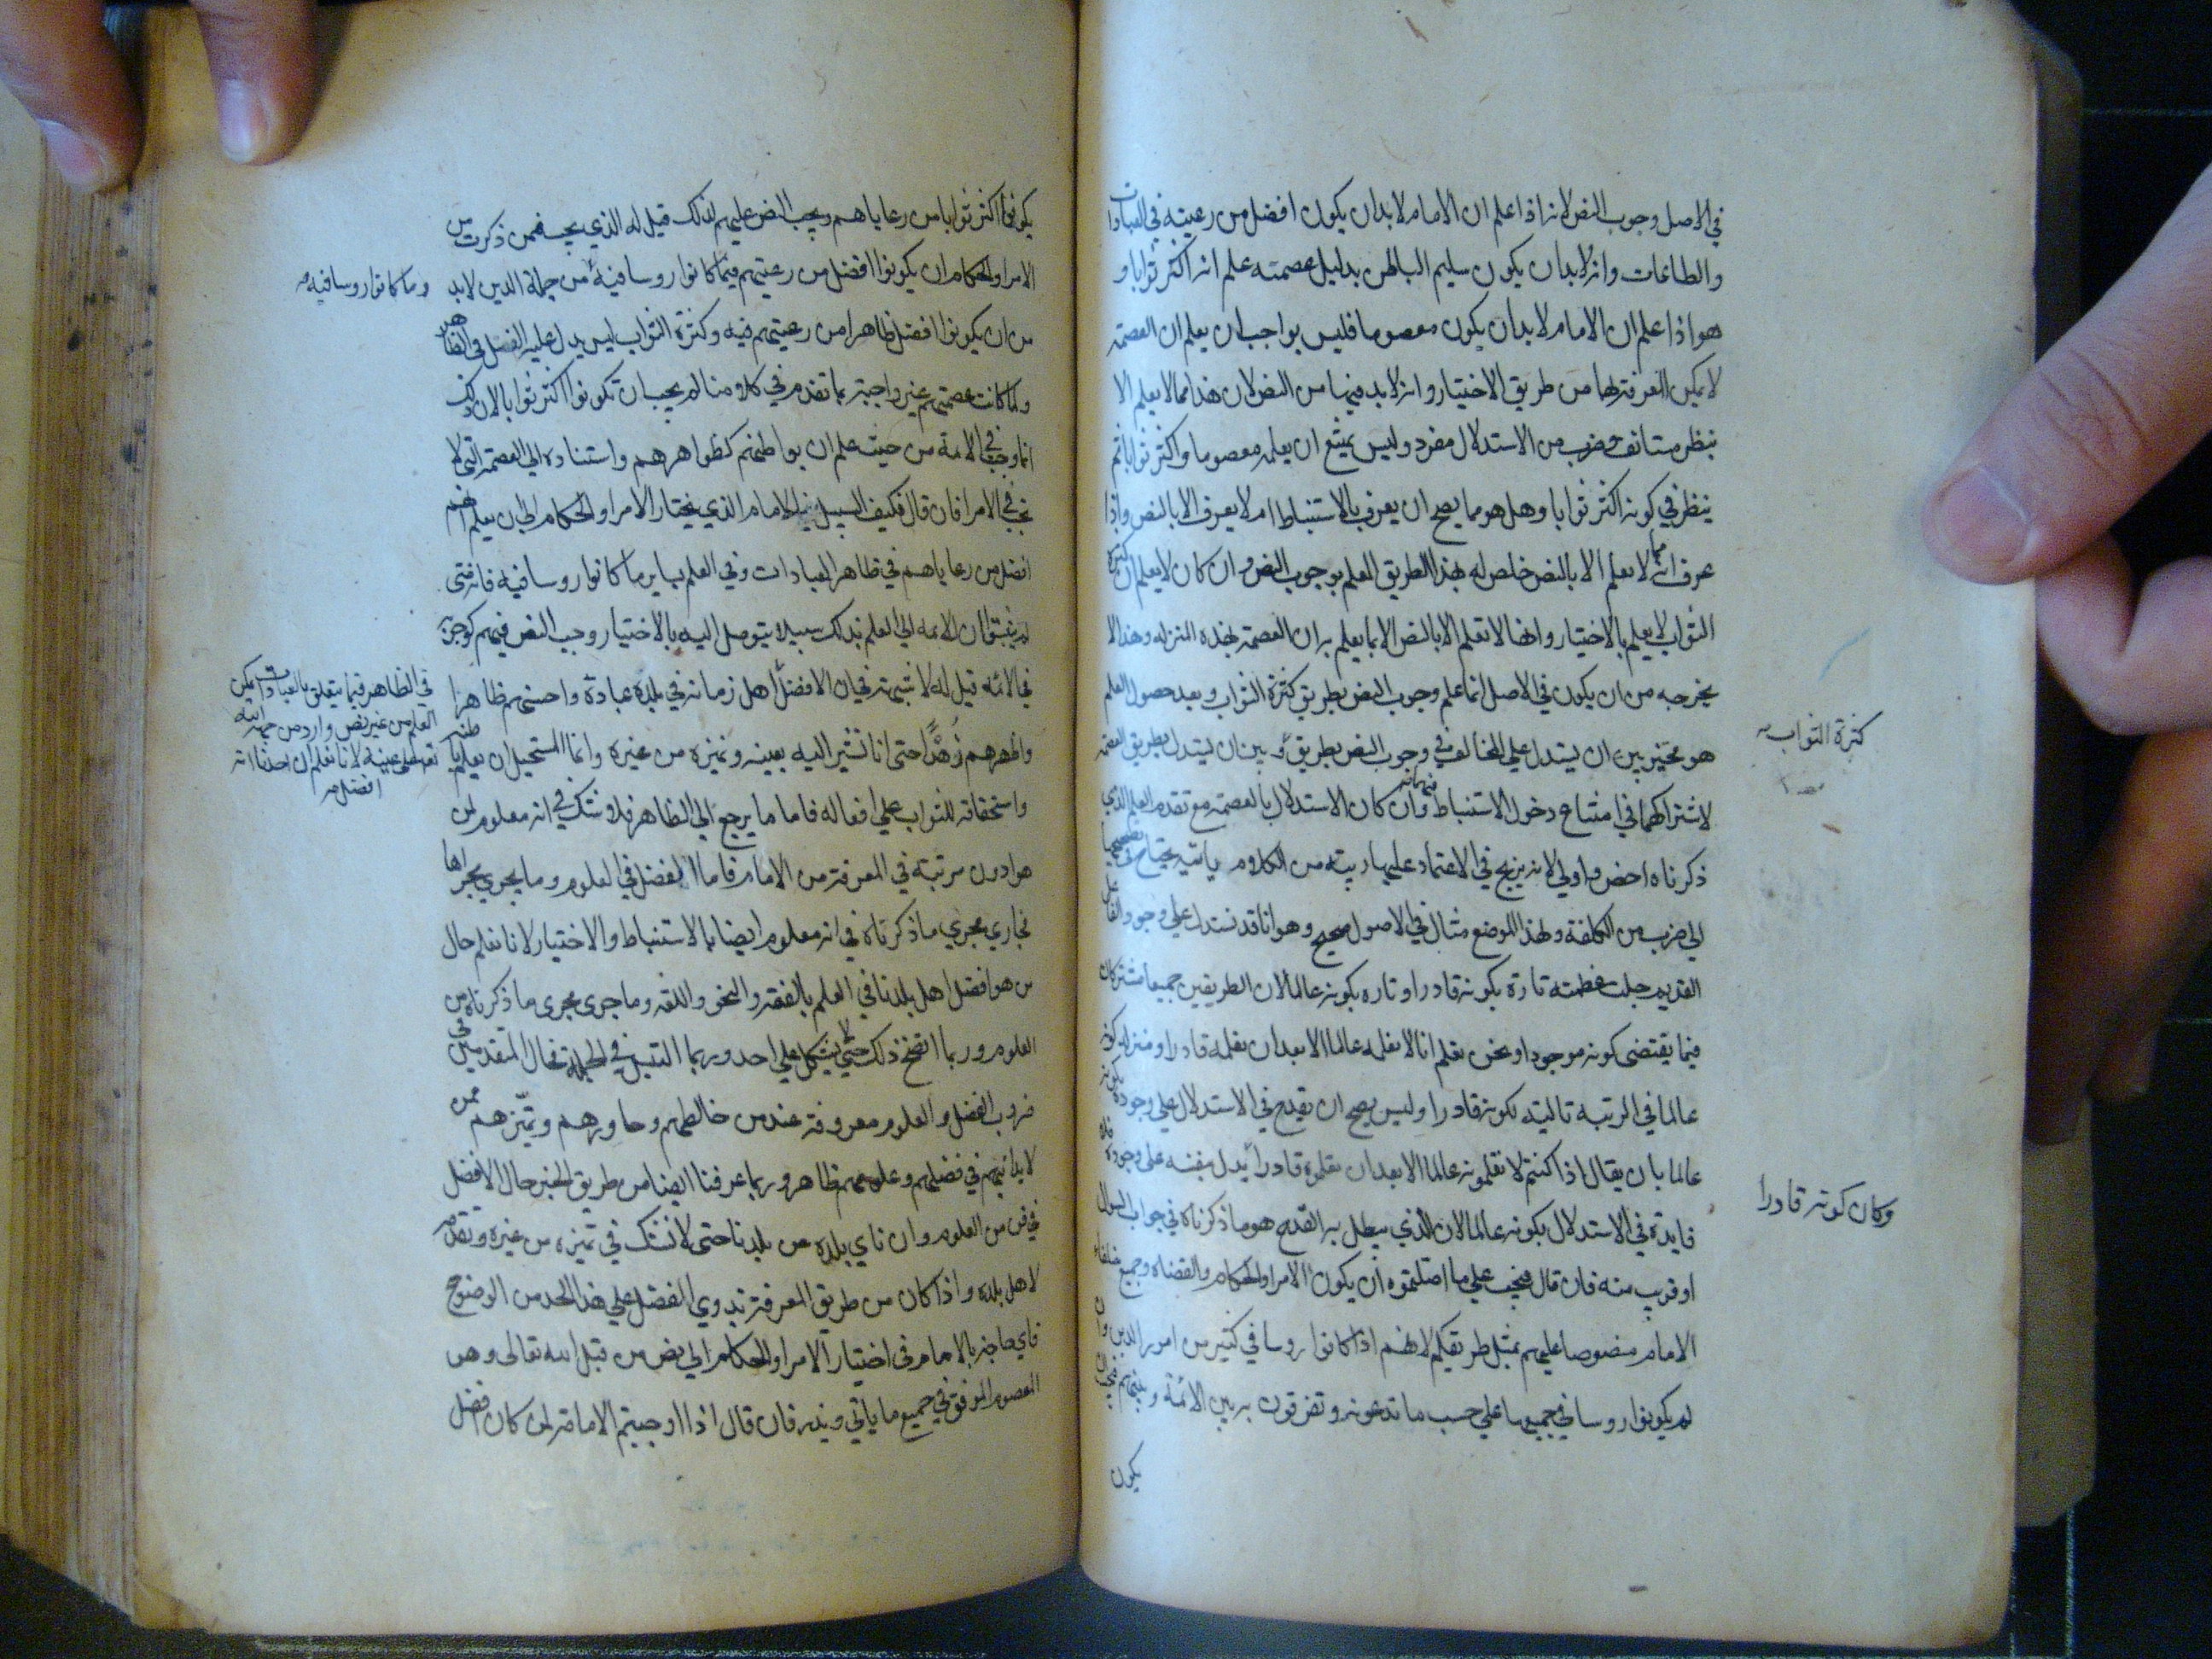 في الاصل وجوب النص لانه اذا علم ان الامام لا بد ان يكون افضل من رعيته في العبادات
والطاعات وانه لا بد ان يكون سليم الباطن بدليل عصمته علم انه اكثر ثوابا و
هو اذا علم ان الامام لا بد ان يكون معصوما فليس بواجب ان يعلم ان العصمة
لا يمكن المعرفة بها من طريق الاختيار وانه لا بد فيها من النص لان هذا مما لا يعلم الا
بنظر مستانف وضرب من الاستدلال مفرد وليس يمتنع ان يعلمه معصوما واكثر ثوابا ثم
ينظر في كونه اكثر ثوابا وهل هو مما يصح ان يعرف بالاستنباط ام لا يعرف الا بالنص واذا
عرف انه مما لا يعلم الا بالنص خلص له بهذا الطريق العلم بوجوب النص وان كان لا يعلم ان كثرة
الثواب لا يعلم بالاختيار وانها لا تعلم الا بالنص الا بما يعلم به ان العصمة بهذه المنزلة وهذا لا
يخرجه من ان يكون في الاصل انما علم وجوب النص بطريق كثرة الثواب وبعد حصول العلم
هو مخير بين ان يستدل علي المخالف في وجوب النص بطريق وبين ان يستدل بطريق العصمة
كثرة الثواب
لاشتراكهما في امتناع دخول الاستنباط فيهما وان كان الاستدلال بالعصمة مع تقدم العلم الذي
ذكرناه اخص واولي لانه يزيح في الاعتماد عليها من الكلام يحتاج في تصحيحها
الي ضرب من الكلفة ولهذا الموضع مثال في الاصول صحيح وهو انا قد نستدل علي وجود الفاعل
القديم جلت عظمته تارة بكونه قادرا وتاره بكونه عالما لان الطريقين جميعا مشتركان
فيما يقتضي كونه موجودا ونحن نعلم انا لا نعلمه عالما الا بعد ان نعلمه قادرا ومنزلة كونه
عالما في الرتبة تالية لكونه قادرا وليس يصح ان يقدح في الاستدلال علي وجوده بكونه
عالما بان يقال اذا كنتم لا تعلمونه عالما الا بعد ان تعلموه قادرا يدل بنفسه علي وجوده فلا
وكان كونه قادرا
فايدة في الاستدلال بكونه عالما لان الذي يبطل به القدح هو ما ذكرناه في جواب السوال
او قريب منه فان قال فيجب علي ما اصلتموه ان يكون الامرا والحكام والقضاه وجميع خلفاء
الامام منصوصا عليهم بمثل طريقتكم لانهم اذا كانوا روسا في كثير من امور الدين وان
لم يكونوا روسا في جميعها علي حسب ما تدعونه وتفرقون به بين الائمة وبينهم فيجب ان
يكون
يكونوا اكثر ثوابا من رعاياهم ويجب النص عليهم لذلك قيل له الذي يجب فيمن ذكرت من
الامرا والحكام ان يكونوا افضل من رعيتهم فيما كانوا روسا فيه من جملة الدين لا بد
وما كانوا روسا فيه
من ان يكونوا افضل ظاهرا من رعيتهم فيه وكثرة الثواب ليس يدل عليه الفضل في الظاهر
ولما كانت عصمتهم غير واجبة بما تقدم في كلامنا لم يجب ان تكونوا اكثر ثوابا لان ذلك
انما وجب في الائمة من حيث علم ان بواطنهم كظواهرهم واستناده الي العصمة التي لا
تجب في الامرا فان قال فكيف السبيل للامام الذي يختار الامرا والحكام الي ان يعلم انهم
افضل من رعاياهم في ظاهر العبادات وفي العلم بساير ما كانوا روسا فيه فانه متى
لم يثبتوا ان للائمه الي العلم بذلك سبيلا يتوصل اليه بالاختيار وجب النص فيهم كوجوبه
في الائمة قيل له لا شبهة في ان الافضل اهل زمانه في بلده عبادة واحسنهم ظاهرا
في الظاهر فيما يتعلق بالعبادات يمكن
العلم من غير نص وارد من جهة الله
تعالى علي عينه لانا نعلم ان احدنا انه
افضل
واظهرهم زهدا حتى انا نشير اليه بعينه ونميزه من غيره وانما المستحيل ان يعلم باطنه
واستحقاقه للثواب علي افعاله فاما ما يرجع الي الظاهر فلا شك في انه معلوم لمن
هو ادون مرتبة في المعرفة من الامام فاما الفضل في العلوم وما يجري مجراها
فجاري مجري ما ذكرناه في انه معلوم ايضا بالاستنباط والاختيار لانا نعلم حال
من هو افضل اهل بلدنا في العلم بالفقه والنحو واللغه وما جرى مجرى ما ذكرناه من
العلوم وربما اتضح ذلك حتي لا يشكل علي احد وربما التبس في الجملة فحال المتقدمين في
ضروب الفضل والعلوم معروفة عند من خالطهم وحاورهم وتميزهم ممن
لا يدانيهم في فضلهم وعلمهم ظاهر وربما عرفنا ايضا من طريق الخبر حال الافضل
في فن من العلوم وان ناي بلده عن بلدنا حتى لا نشك في تميزه من غيره وتقدمه
لاهل بلده واذا كان من طريق المعرفة بذوي الفضل علي هذا الحد من الوضوح
فاي حاجة بالامام في اختيار الامرا والحكام الي نص من قبل الله تعالى وهو
المعصوم الموفق في جميع ما ياتي ويذر فان قال اذا اوجبتم الامامة لمن كان افضل